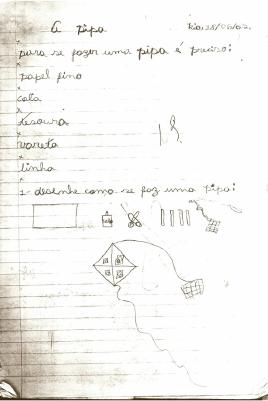 A pipa Rio, 28/06/02.
para se fazer uma pipa é preciso:
papel fino
cola
tesoura
vareta
linha
1- desenhe como se faz uma pipa: